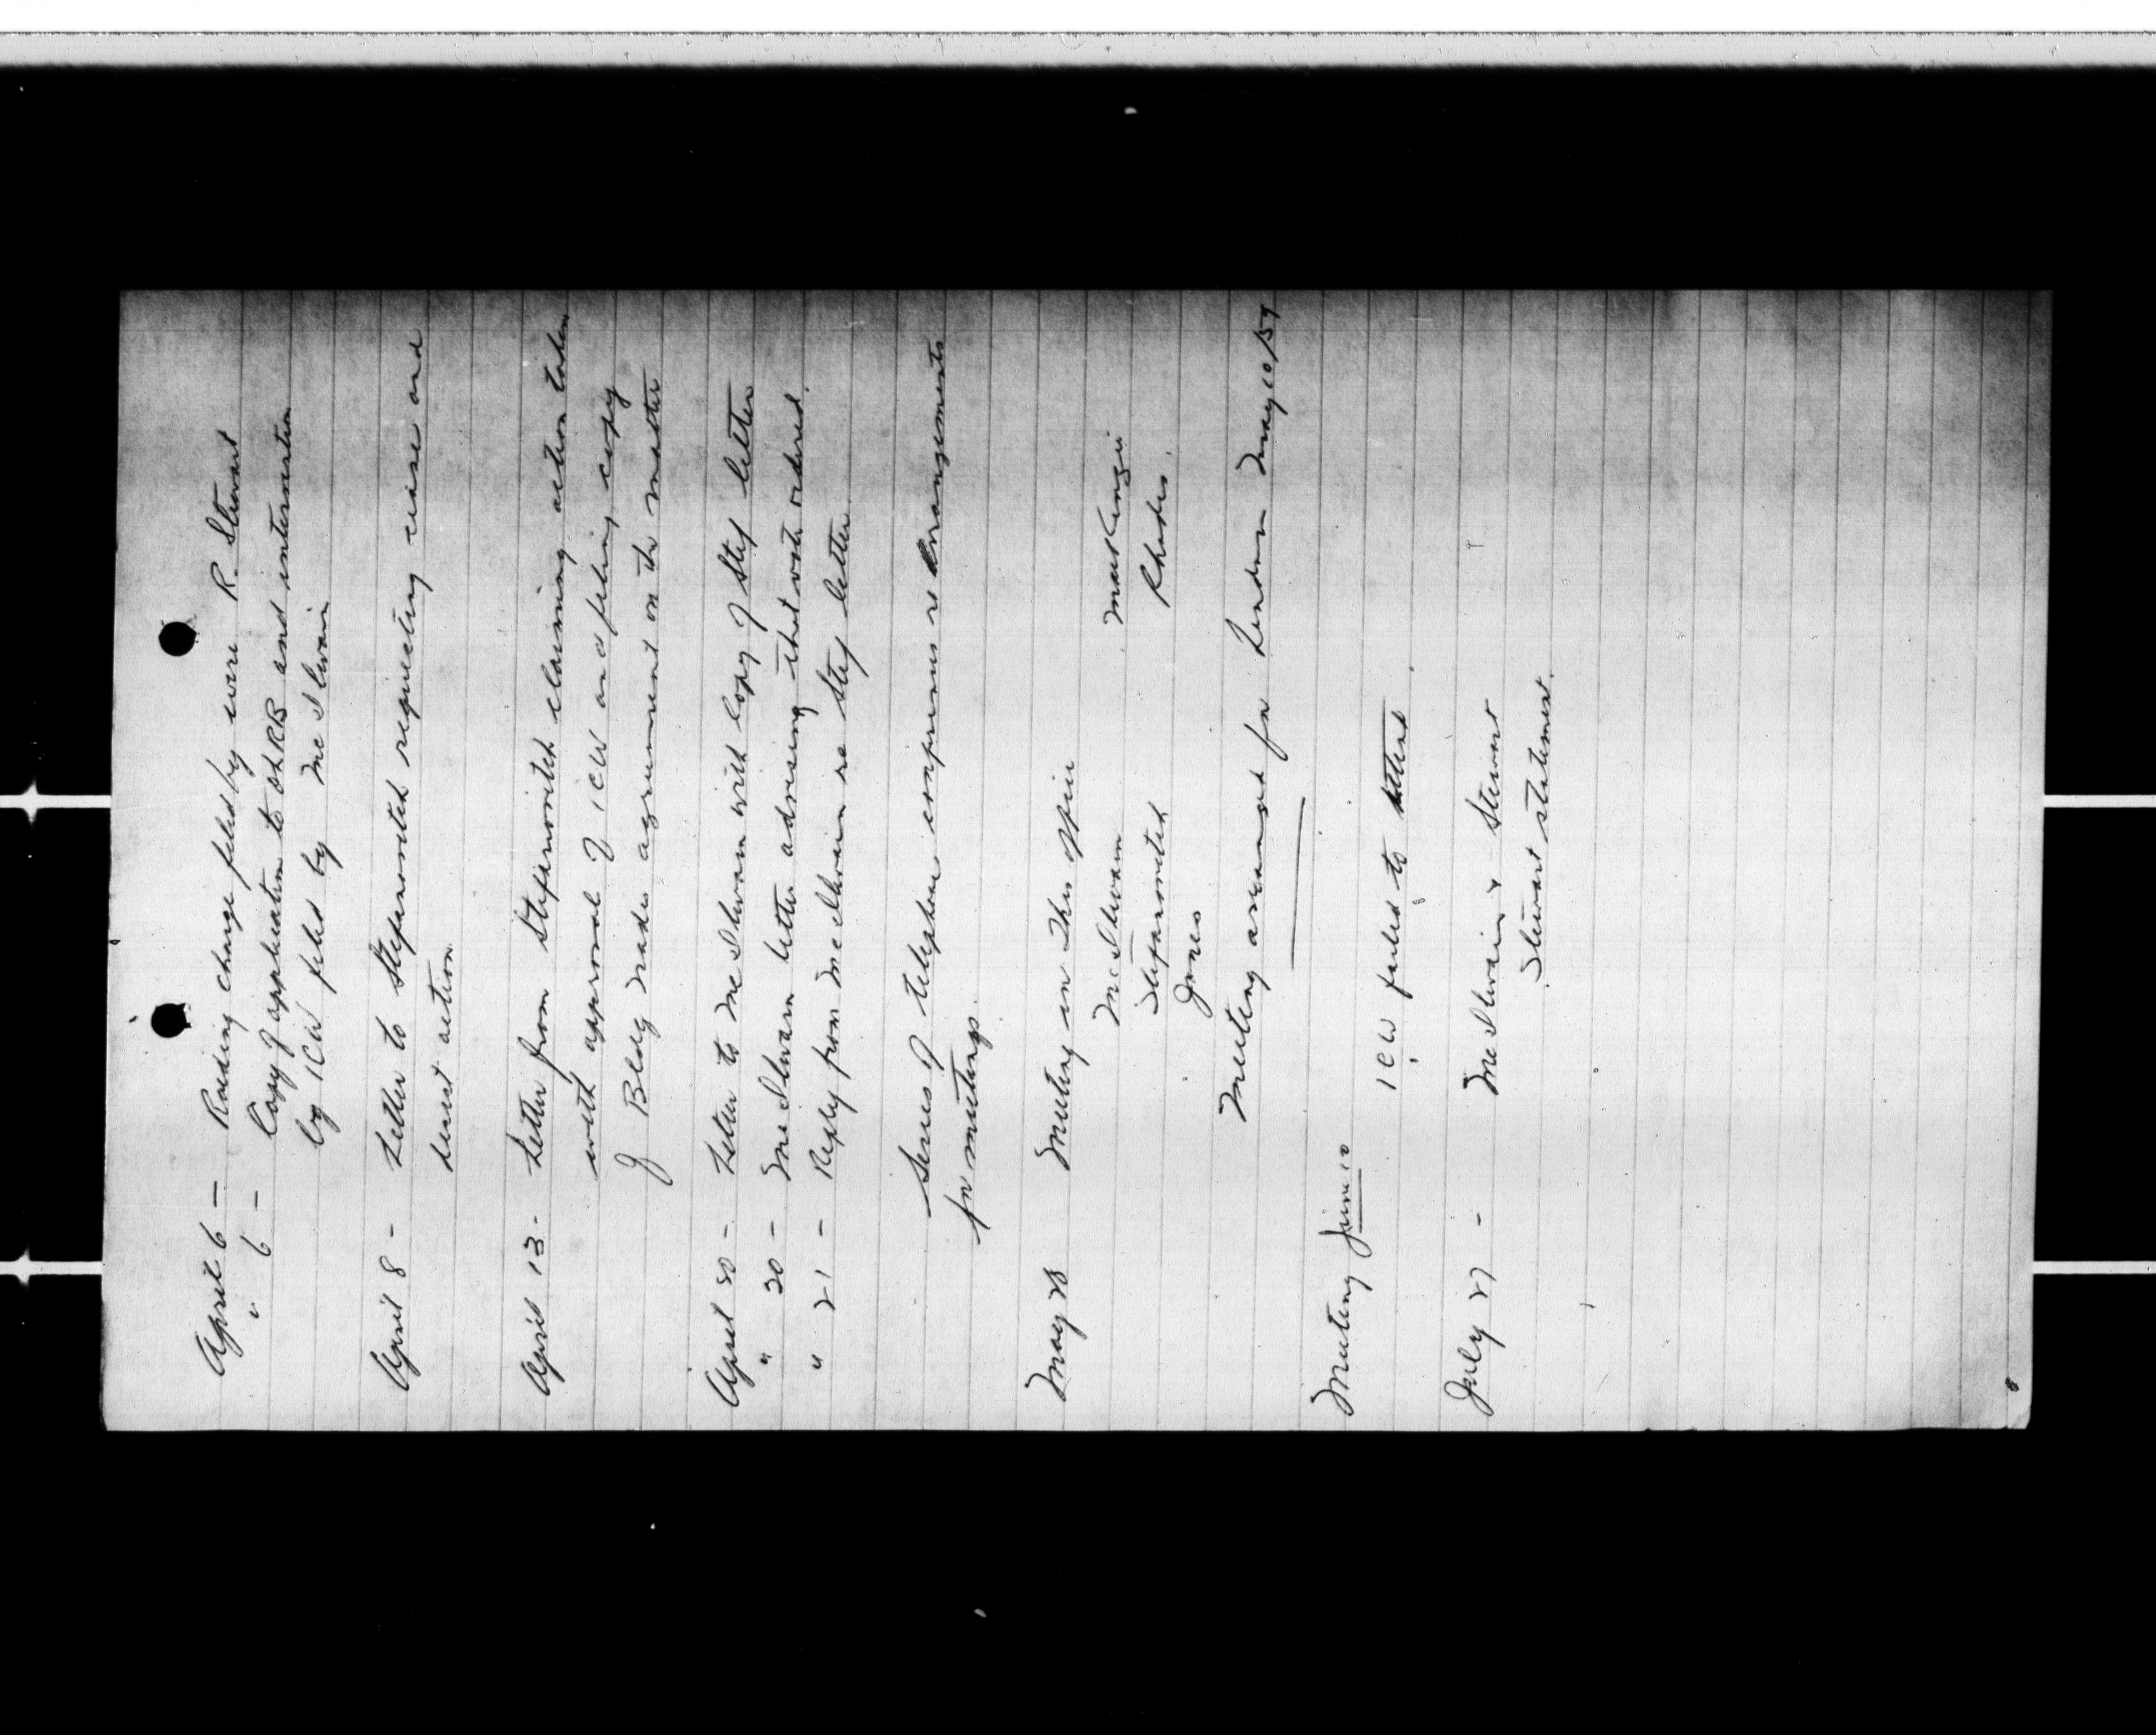 April 6 — Raiding charge filed by wire R. Stewart
" 6 — Copy of application to OLRB and intervention
by ICW filed by McIlwain
April 8 - Letter to Stefanovitch requesting cease and
desist action.
April 13 - Letter from Stefanovitch claiming action taken
with approval of ICW and filing copy
of Bldg Trades agreement on the matter
April 20 - Letter to McIlwain with copy of Stef letter
" 20 - McIlwain letter advising that vote ordered.
" 21 - Reply from McIlwain re Stef letter.
Series of telephone conferences re arrangements
for meetings.
May 28 Meeting in this office
McIlwain MacKenzie
Stefanovitch Rhodes.
Jones
Meeting arranged for London May 10/59
Meeting June 10
ICW failed to attend
July 27 - McIlwain & Stewart
Stewart statement.